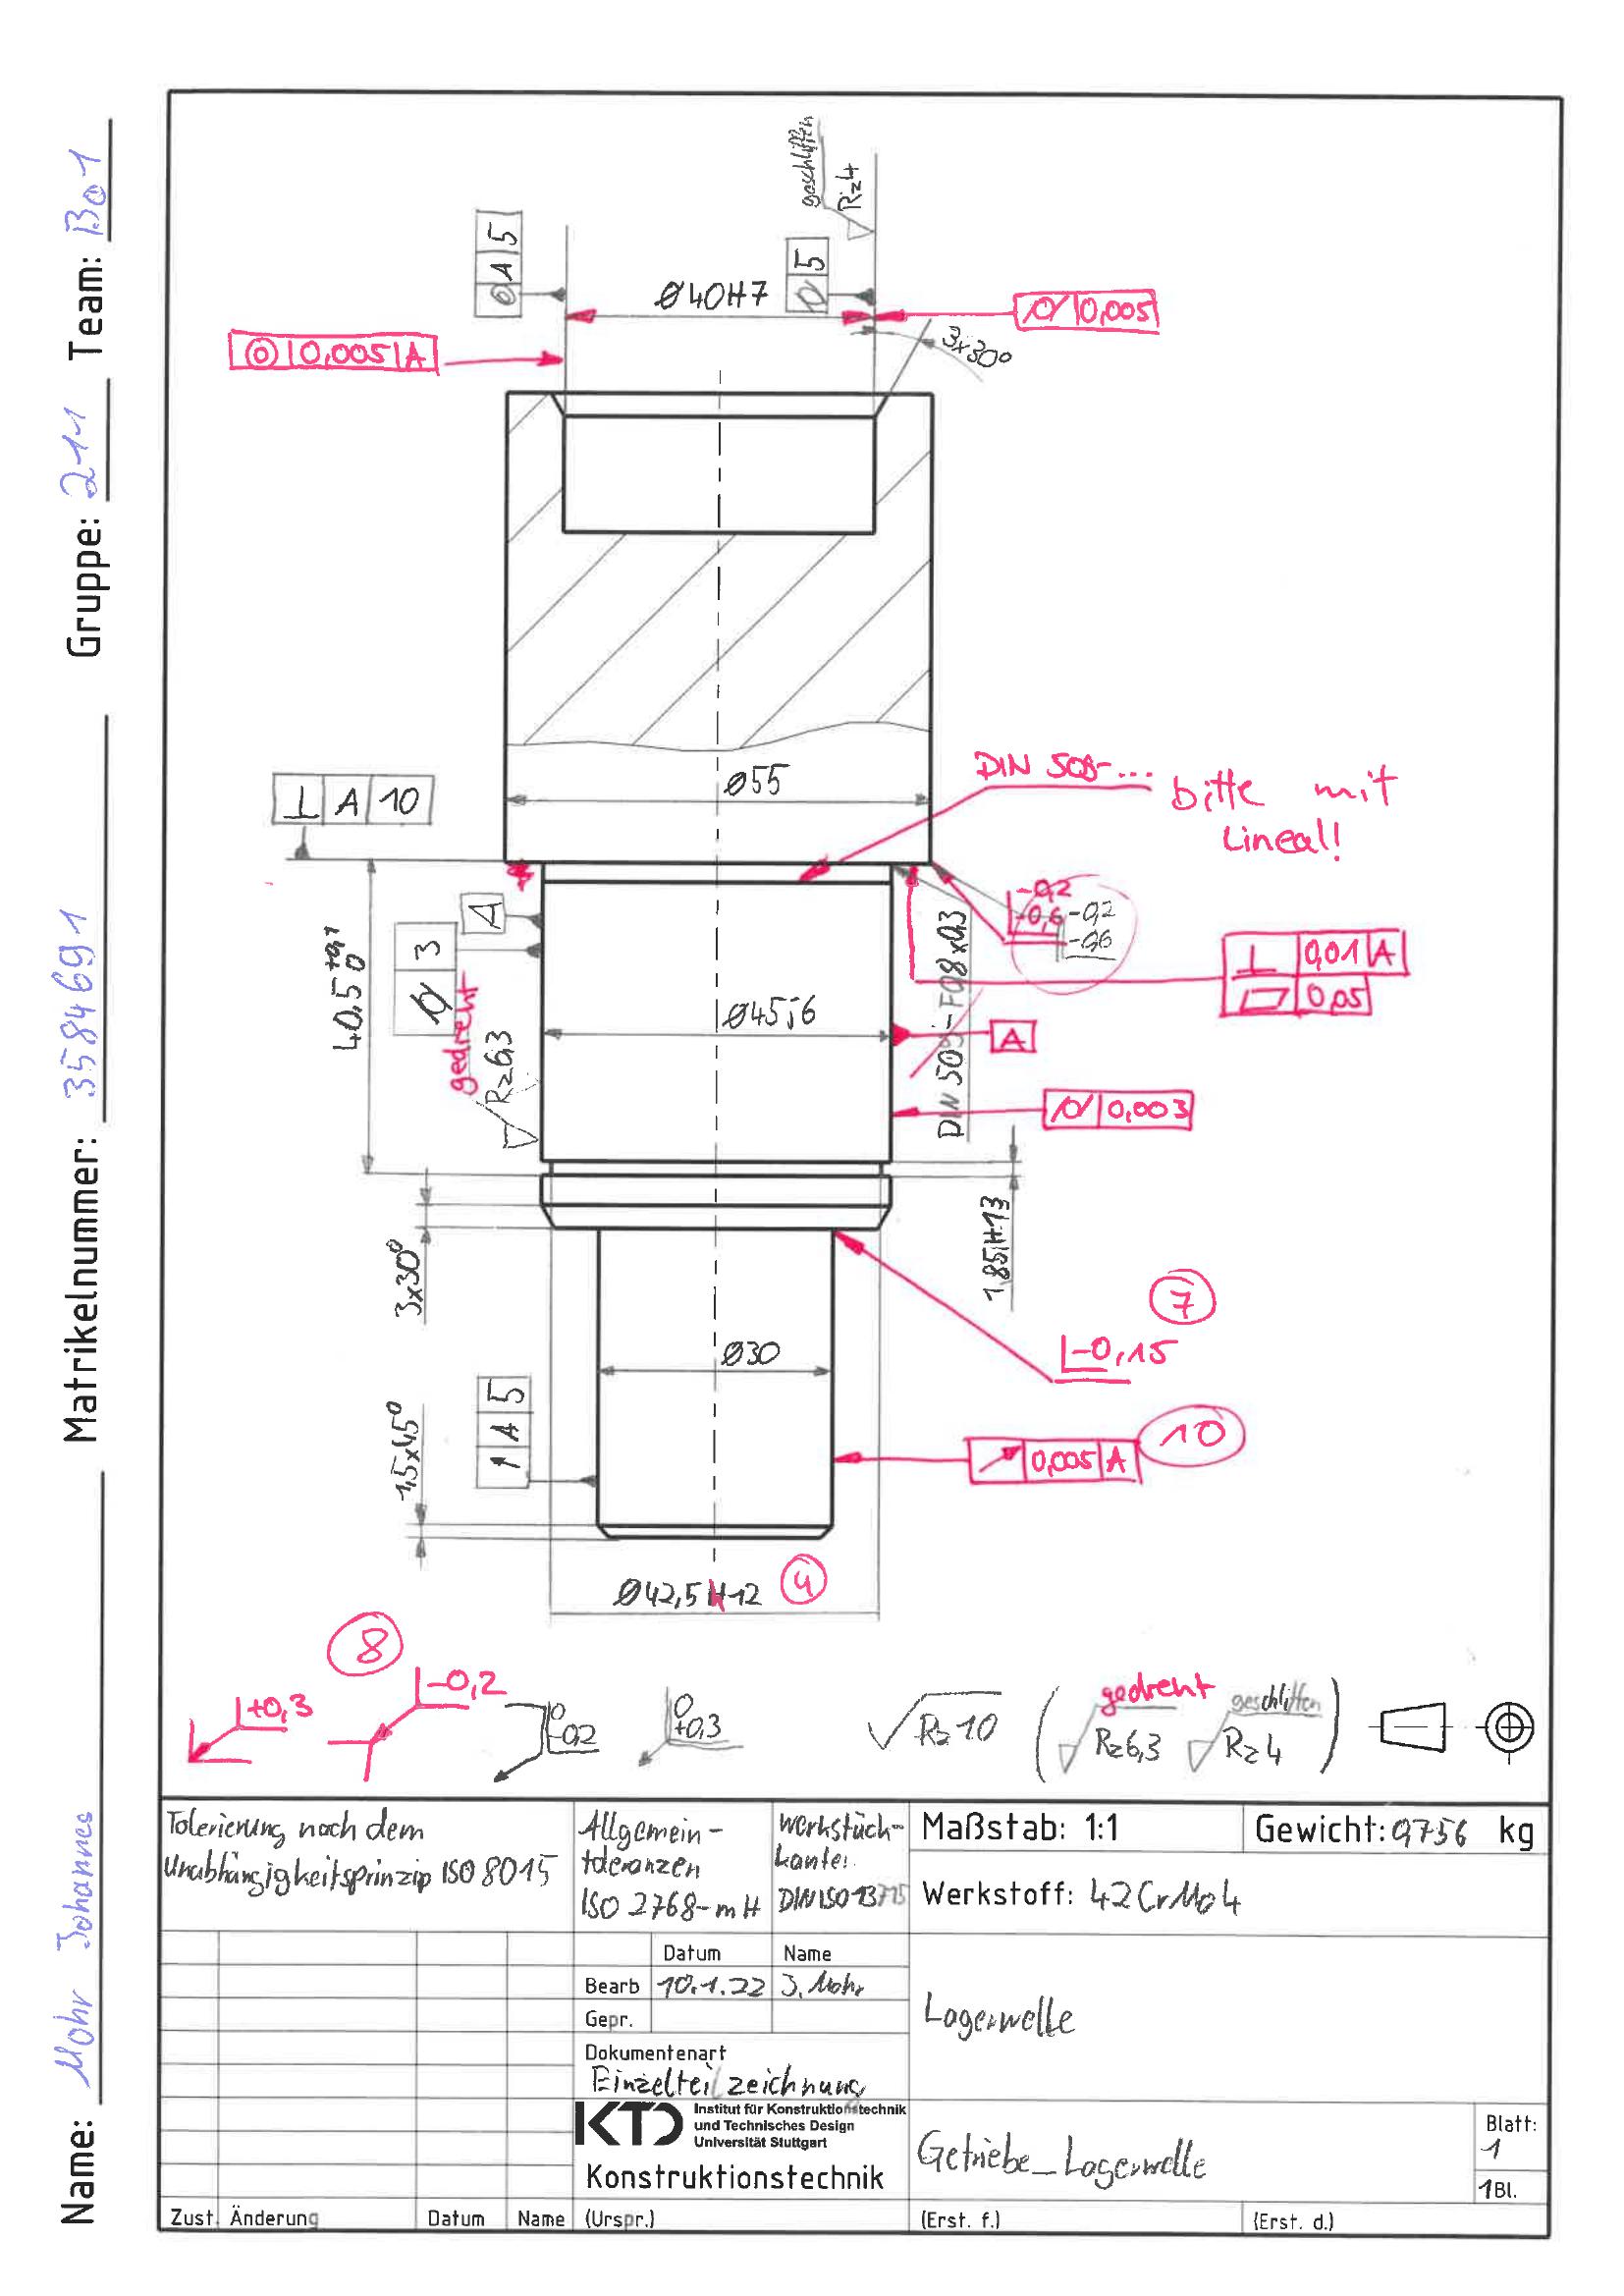 Name: Mohr Johannes Matrikelnummer: 3584691 Gruppe: 211 Team: B01
geschliffen
Rz4
◎ A 5
⌀40H7
⌭ 5
⌭ 0,005
◎ 0,005 A
3x30°
⌀55
DIN 509-...
bitte mit
Lineal!
⊥ A 10
-0,2
-0,6
-0,2
-0,6
A
⌭ 3
40,5 +0,1 0
⊥ 0,01 A
⏥ 0,05
gedreht
Rz6,3
⌀45j6
DIN 509-F0,8x0,3
A
⌭ 0,003
1,85H13
3x30°
7
-0,15
⌀30
↗ A 5
1,5x45°
↗ 0,005 A
10
⌀42,5h12
4
8
+0,3
-0,2
0
-0,2
0
+0,3
√Rz10 (gedreht Rz6,3 geschliffen Rz4)
Tolerierung nach dem
Unabhängigkeitsprinzip ISO 8015
Allgemein-
toleranzen
ISO 2768-mH
Werkstück-
kanten
DIN ISO 13715
Maßstab: 1:1
Gewicht: 0,756 kg
Werkstoff: 42CrMo4
Datum Name
Bearb 10.1.22 J. Mohr
Gepr.
Lagerwelle
Dokumentenart
Einzelteilzeichnung
KTD Institut für Konstruktionstechnik
und Technisches Design
Universität Stuttgart
Konstruktionstechnik
Getriebe_Lagerwelle
Blatt:
1
1Bl.
Zust. Änderung Datum Name (Urspr.) (Erst. f.) (Erst. d.)